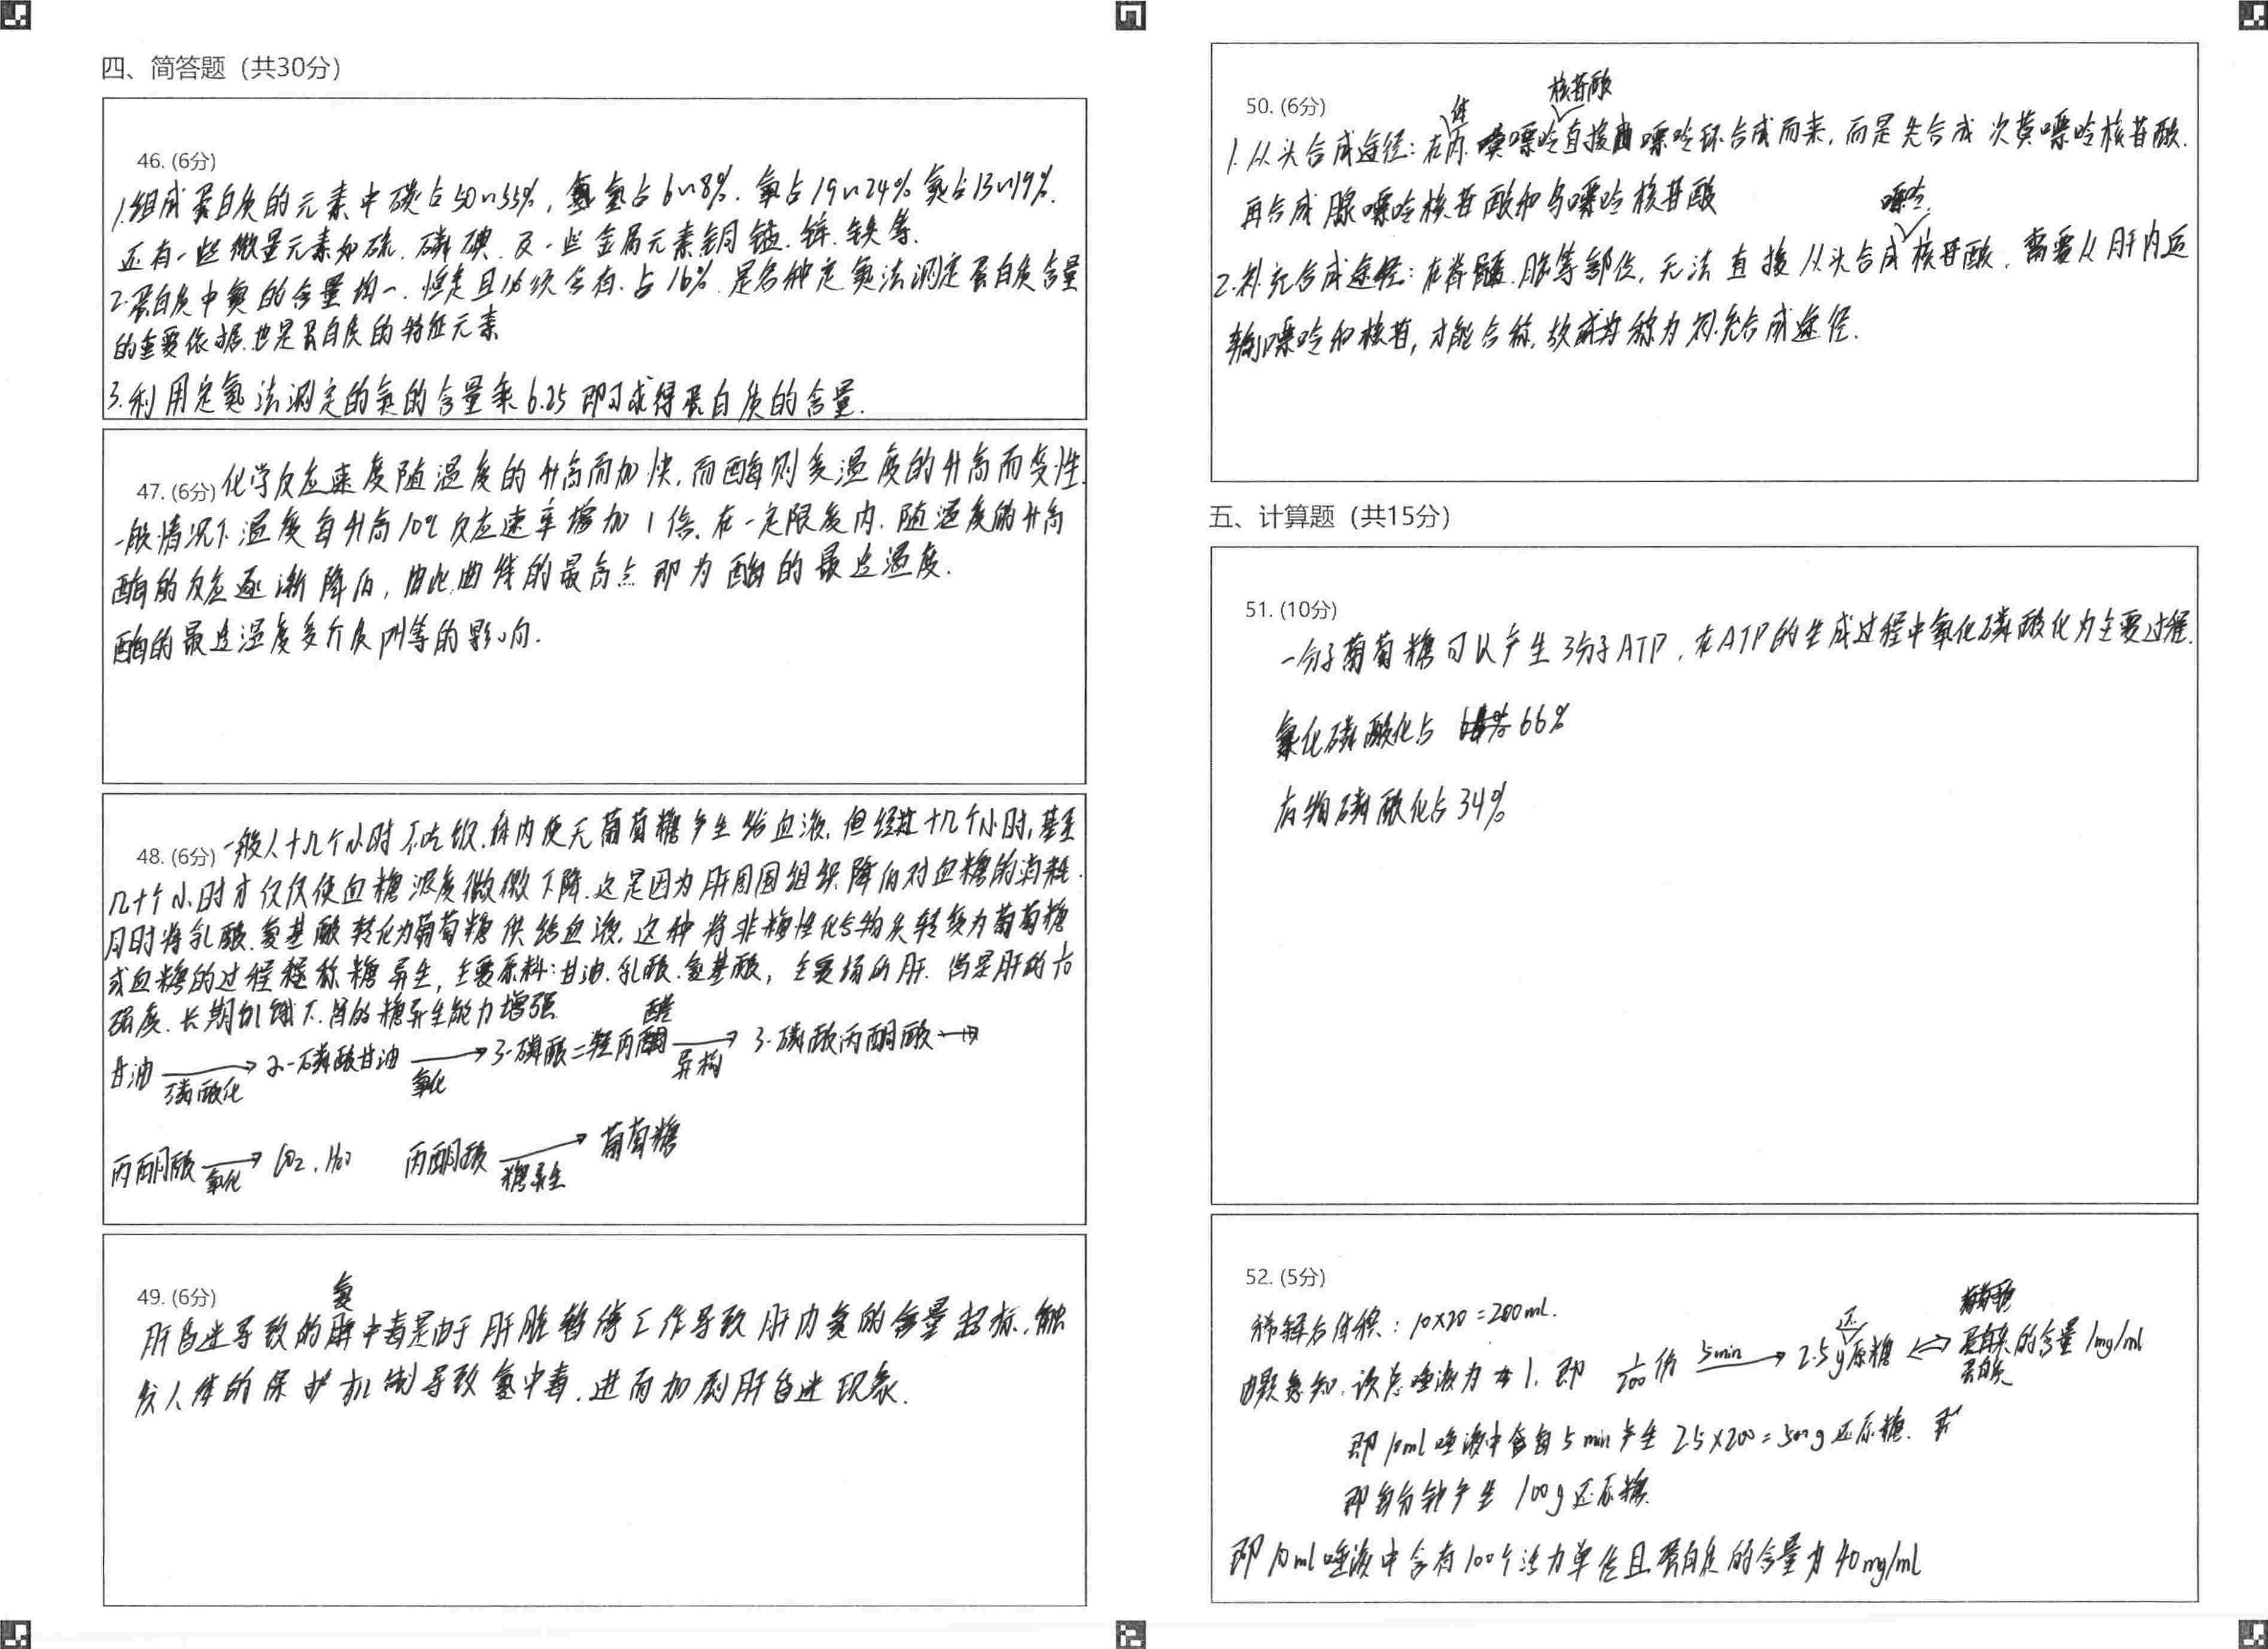 四、简答题（共30分）
46. (6分)
1.组成蛋白质的元素中碳占50~55%，氢占6~8%.氧占19~24%氮占13~19%.
还有一些微量元素如硫.磷碘.及一些金属元素铜锰.锌.铁等.
2.蛋白质中氮的含量均一.恒定且必须含有.占16%.是各种定氮法测定蛋白质含量
的重要依据.也是蛋白质的特征元素
3.利用定氮法测定的氮的含量乘6.25即可求得蛋白质的含量.
47. (6分) 化学反应速度随温度的升高而加快,而酶则受温度的升高而变性.
一般情况下温度每升高10℃反应速率增加1倍.在一定限度内.随温度的升高
酶的反应逐渐降低,由此曲线的最高点即为酶的最适温度.
酶的最适温度受介质PH等的影响.
48. (6分) 一般人十几个小时不吃饭.体内便无葡萄糖产生给血液.但经过十几个小时,甚至
几十个小时才仅仅使血糖浓度微微下降.这是因为肝周围组织降低对血糖的消耗.
同时将乳酸.氨基酸转化为葡萄糖供给血液.这种将非糖性化合物质转变为葡萄糖
或血糖的过程称糖异生,主要原料:甘油.乳酸.氨基酸,主要场所肝.肾是肝的1/10
强度.长期饥饿下.肾的糖异生能力增强
甘油 磷酸化→ α-磷酸甘油 氧化→ 3-磷酸二羟丙醛 异构→ 3-磷酸丙酮酸→
丙酮酸 氧化→ CO2.H2O 丙酮酸 糖异生→ 葡萄糖
49. (6分)
肝昏迷导致的氨中毒是由于肝脏暂停工作导致肝内氨的含量超标,触
发人体的保护机制导致氨中毒.进而加剧肝昏迷现象.
50. (6分)
1.从头合成途径:在体内.嘌呤核苷酸直接由嘌呤环合成而来,而是先合成次黄嘌呤核苷酸.
再合成腺嘌呤核苷酸和鸟嘌呤核苷酸
2.补充合成途径:在脊髓.脑等部位,无法直接从头合成嘌呤核苷酸.需要从肝内运
输嘌呤和核苷,才能合称,故称为补充合成途径.
五、计算题（共15分）
51. (10分)
一分子葡萄糖可以产生3分子ATP,在ATP的生成过程中氧化磷酸化为主要过程.
氧化磷酸化占 66%
底物磷酸化占34%
52. (5分)
稀释后体积:10×20=200ml.
由题意知.设总唾液为1.即 1/200份 5min→ 2.5g还原糖 ⇔ 蛋白质的含量1mg/ml
即10ml唾液中含每5min产生2.5×200=500g还原糖.
即每分钟产生100g还原糖.
即10ml唾液中含有100个活力单位且蛋白质的含量为40mg/ml